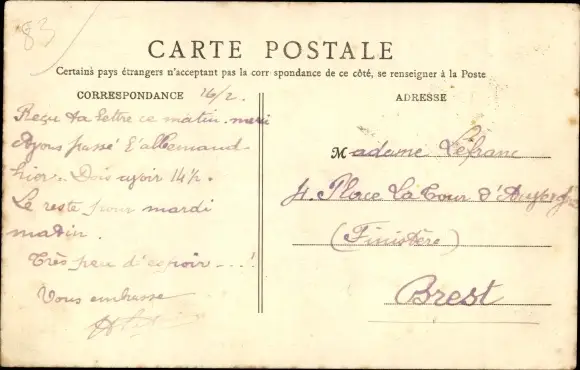 83
CARTE POSTALE
Certains pays étrangers n'acceptant pas la correspondance de ce côté, se renseigner à la Poste
CORRESPONDANCE 16/2.
ADRESSE
Reçu ta lettre ce matin. merci
Ayons passé l'allemand
hier. Dois avoir 14½.
Le reste pour mardi
matin.
Très peu d'espoir ---!
Vous embrasse
Madame Lefranc
4. Place La Tour d'Auvergne
(Finistère)
Brest